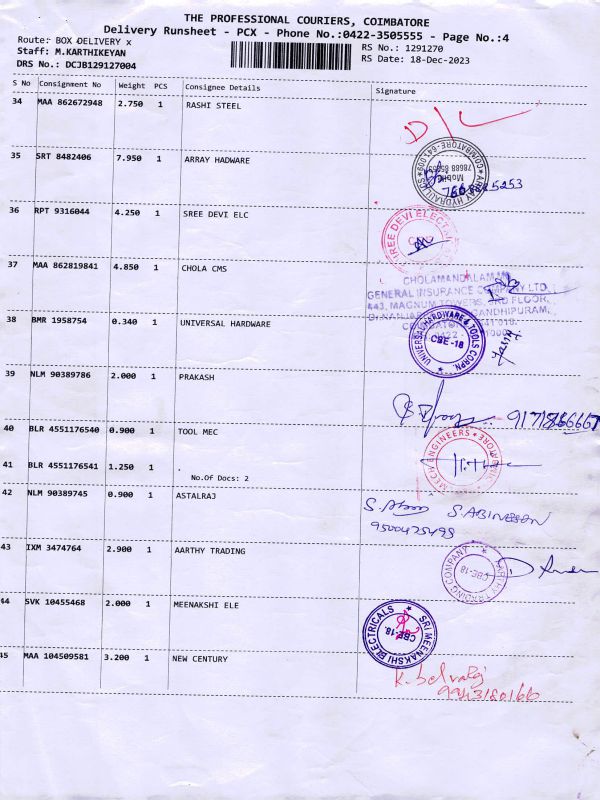 THE PROFESSIONAL COURIERS, COIMBATORE
Delivery Runsheet - PCX - Phone No.:0422-3505555 - Page No.:4
Route: BOX DELIVERY x
RS No.: 1291270
Staff: M.KARTHIKEYAN
RS Date: 18-Dec-2023
DRS No.: DCJB129127004
S No Consignment No Weight PCS Consignee Details Signature
34 MAA 862672948 2.750 1 RASHI STEEL
D/L
35 SRT 8482406 7.950 1 ARRAY HADWARE
ARRAY HYDRAULICS * COIMBATORE-641 009 *
Mobile
36 RPT 9316044 4.250 1 SREE DEVI ELC
37 MAA 862819841 4.850 1 CHOLA CMS
CHOLAMANDALAM MS
GENERAL INSURANCE COMPANY LTD.
443, MAGNUM TOWERS, 3RD FLOOR,
GANDHIPURAM,
38 BMR 1958754 0.340 1 UNIVERSAL HARDWARE
UNIVERSAL HARDWARE & TOOLS CORPN.
CBE-18
39 NLM 90389786 2.000 1 PRAKASH
40 BLR 4551176540 0.900 1 TOOL MEC
MECH ENGINEERS
41 BLR 4551176541 1.250 1 .
No.Of Docs: 2
42 NLM 90389745 0.900 1 ASTALRAJ
S. ABINESAN
9500475495
43 IXM 3474764 2.900 1 AARTHY TRADING
AARTHY TRADING COMPANY
CBE-18
44 SVK 10455468 2.000 1 MEENAKSHI ELE
SRI MEENAKSHI ELECTRICALS
CBE-18.
45 MAA 104509581 3.200 1 NEW CENTURY
K. Selvaraj